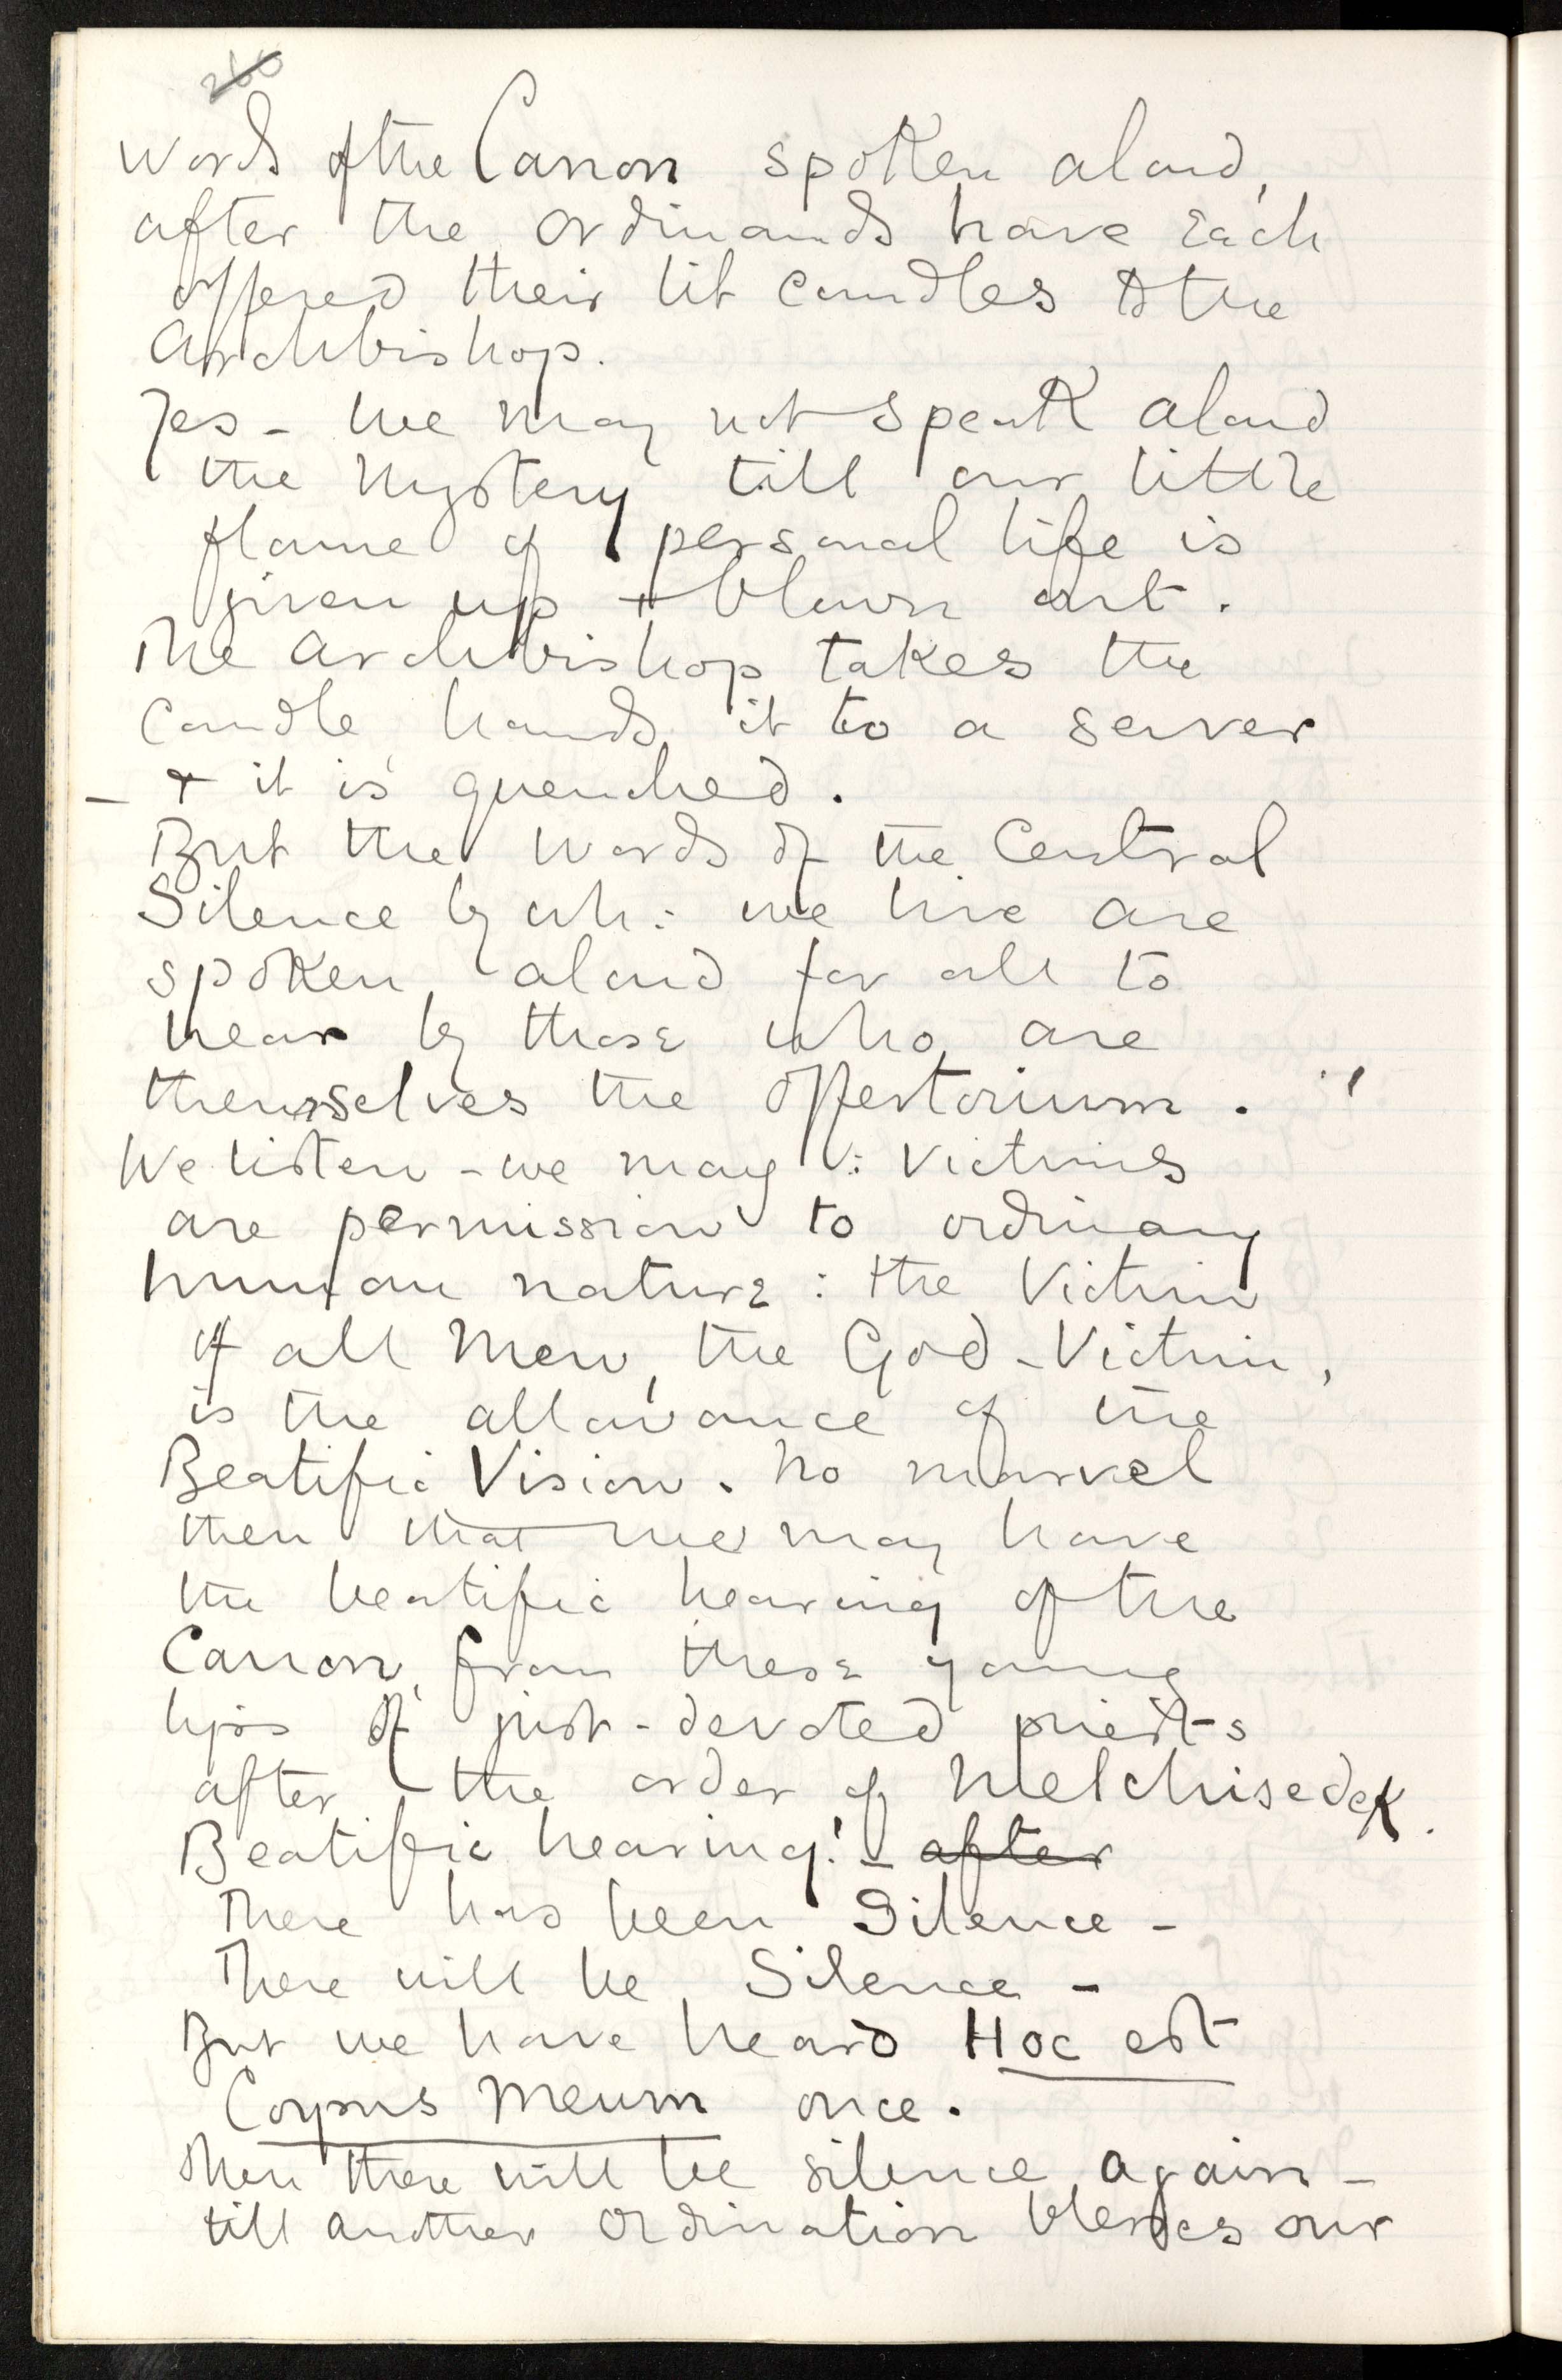 260
words of the Canon spoken aloud,
after the ordinands have each
offered their lit candles to the
Archbishop.
Yes – we may not speak aloud
the Mystery till our little
flame of personal life is
given up + blown out.
The Archbishop takes the
candle, hands it to a server
– + it is quenched.
But the words of the Central
Silence by wh: we live are
spoken aloud for all to
hear by those who are
themselves the Offertorium.
We listen – we may: Victims
are permission to ordinary
human nature: the Victim
of all Men, the God-Victim,
is the allowance of the
Beatific Vision. No marvel
then that we may have
the beatific hearing of the
Canon, from these young
lips of just-devoted priests
after the order of Melchisedek.
Beatific hearing! – after
There has been Silence –
There will be Silence –
But we have heard Hoc est
Corpus Meum once.
Then there will be silence again –
till another Ordination blesses our